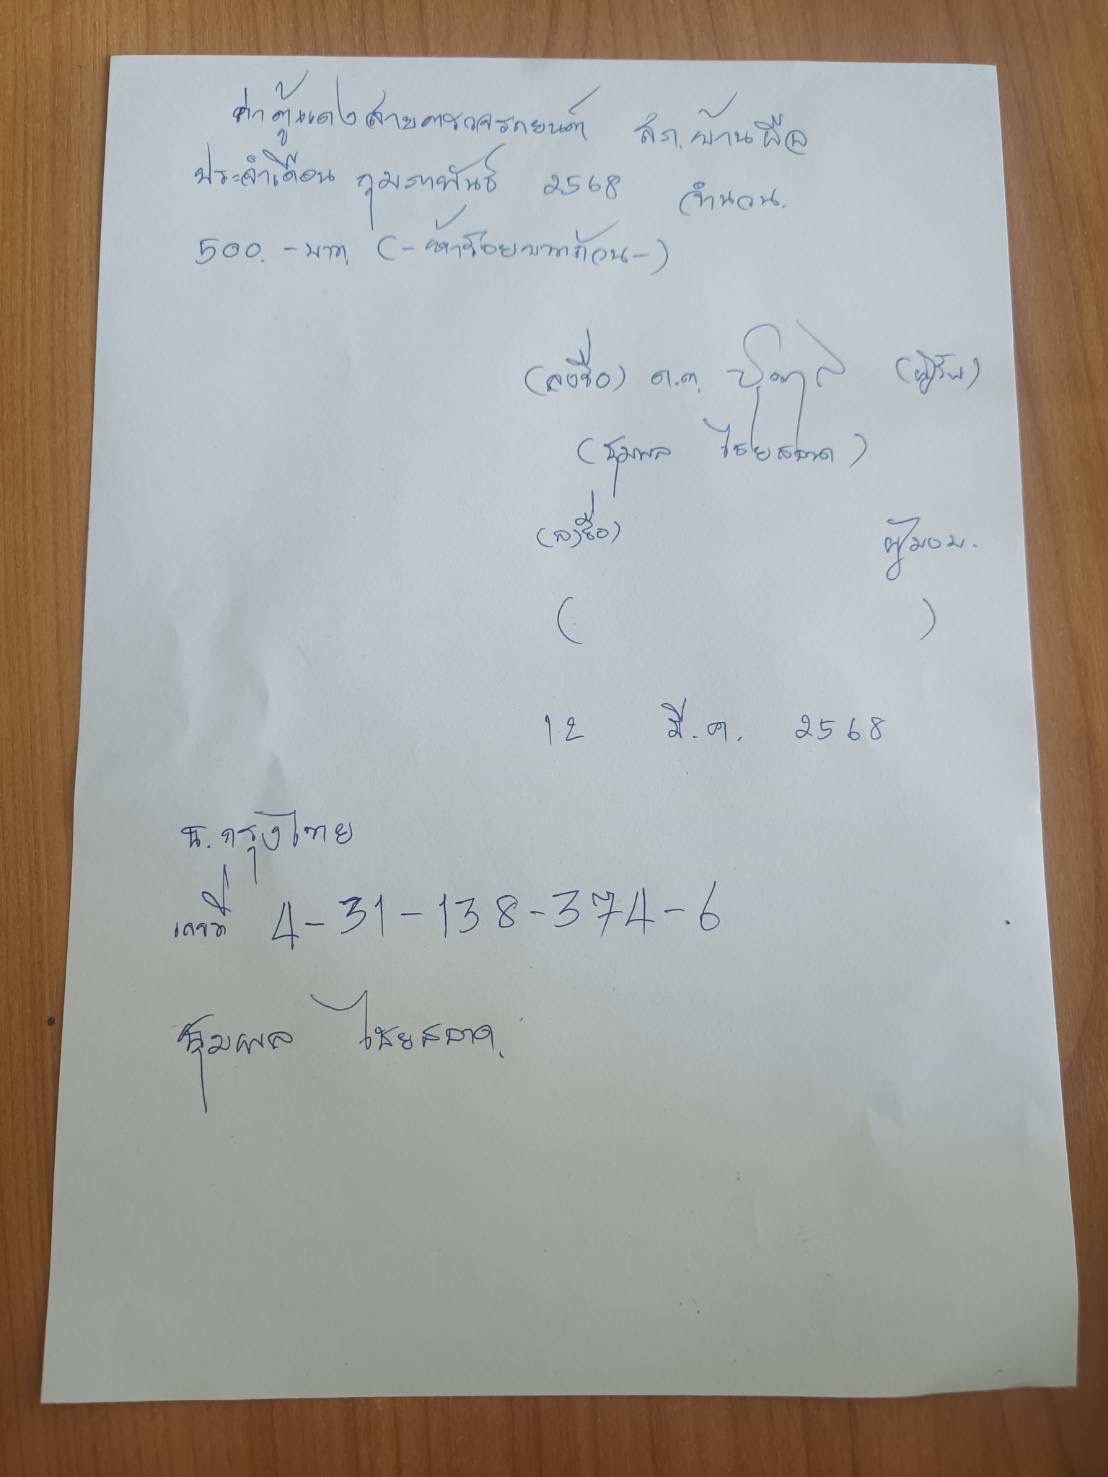 ค่าตู้แดงสายตรวจรถยนต์ สภ.บ้านผือ
ประจำเดือน กุมภาพันธ์ 2568 จำนวน.
500.-บาท (-ห้าร้อยบาทถ้วน-)
(ลงชื่อ) ด.ต. (ผู้รับ)
(ชุมพล ไชยสลาด)
(ลงชื่อ) ผู้มอบ.
( )
12 มี.ค. 2568
ธ.กรุงไทย
เลขที่ 4-31-138-374-6
ชุมพล ไชยสลาด.